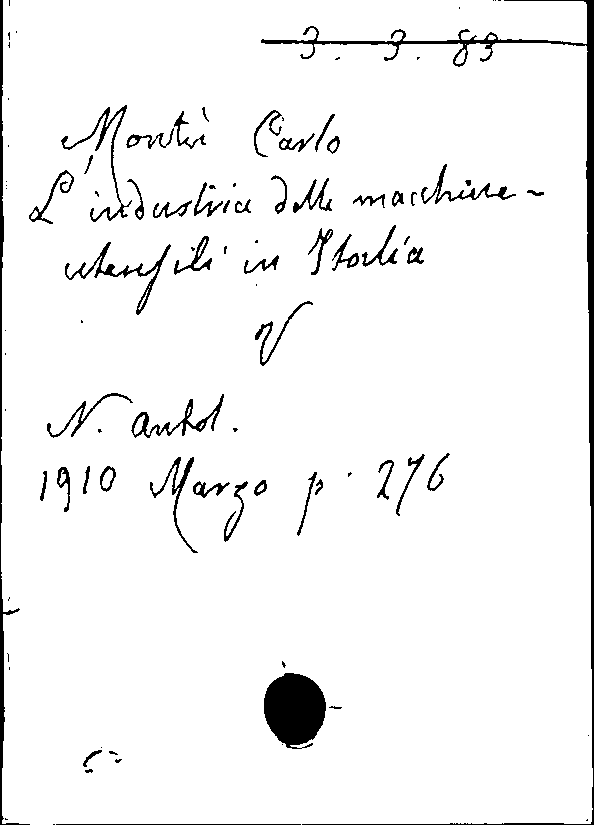 3. 3. 83
Montù Carlo
L'industria delle macchine-
utensili in Italia
V
N. Antol.
1910 Marzo p. 276